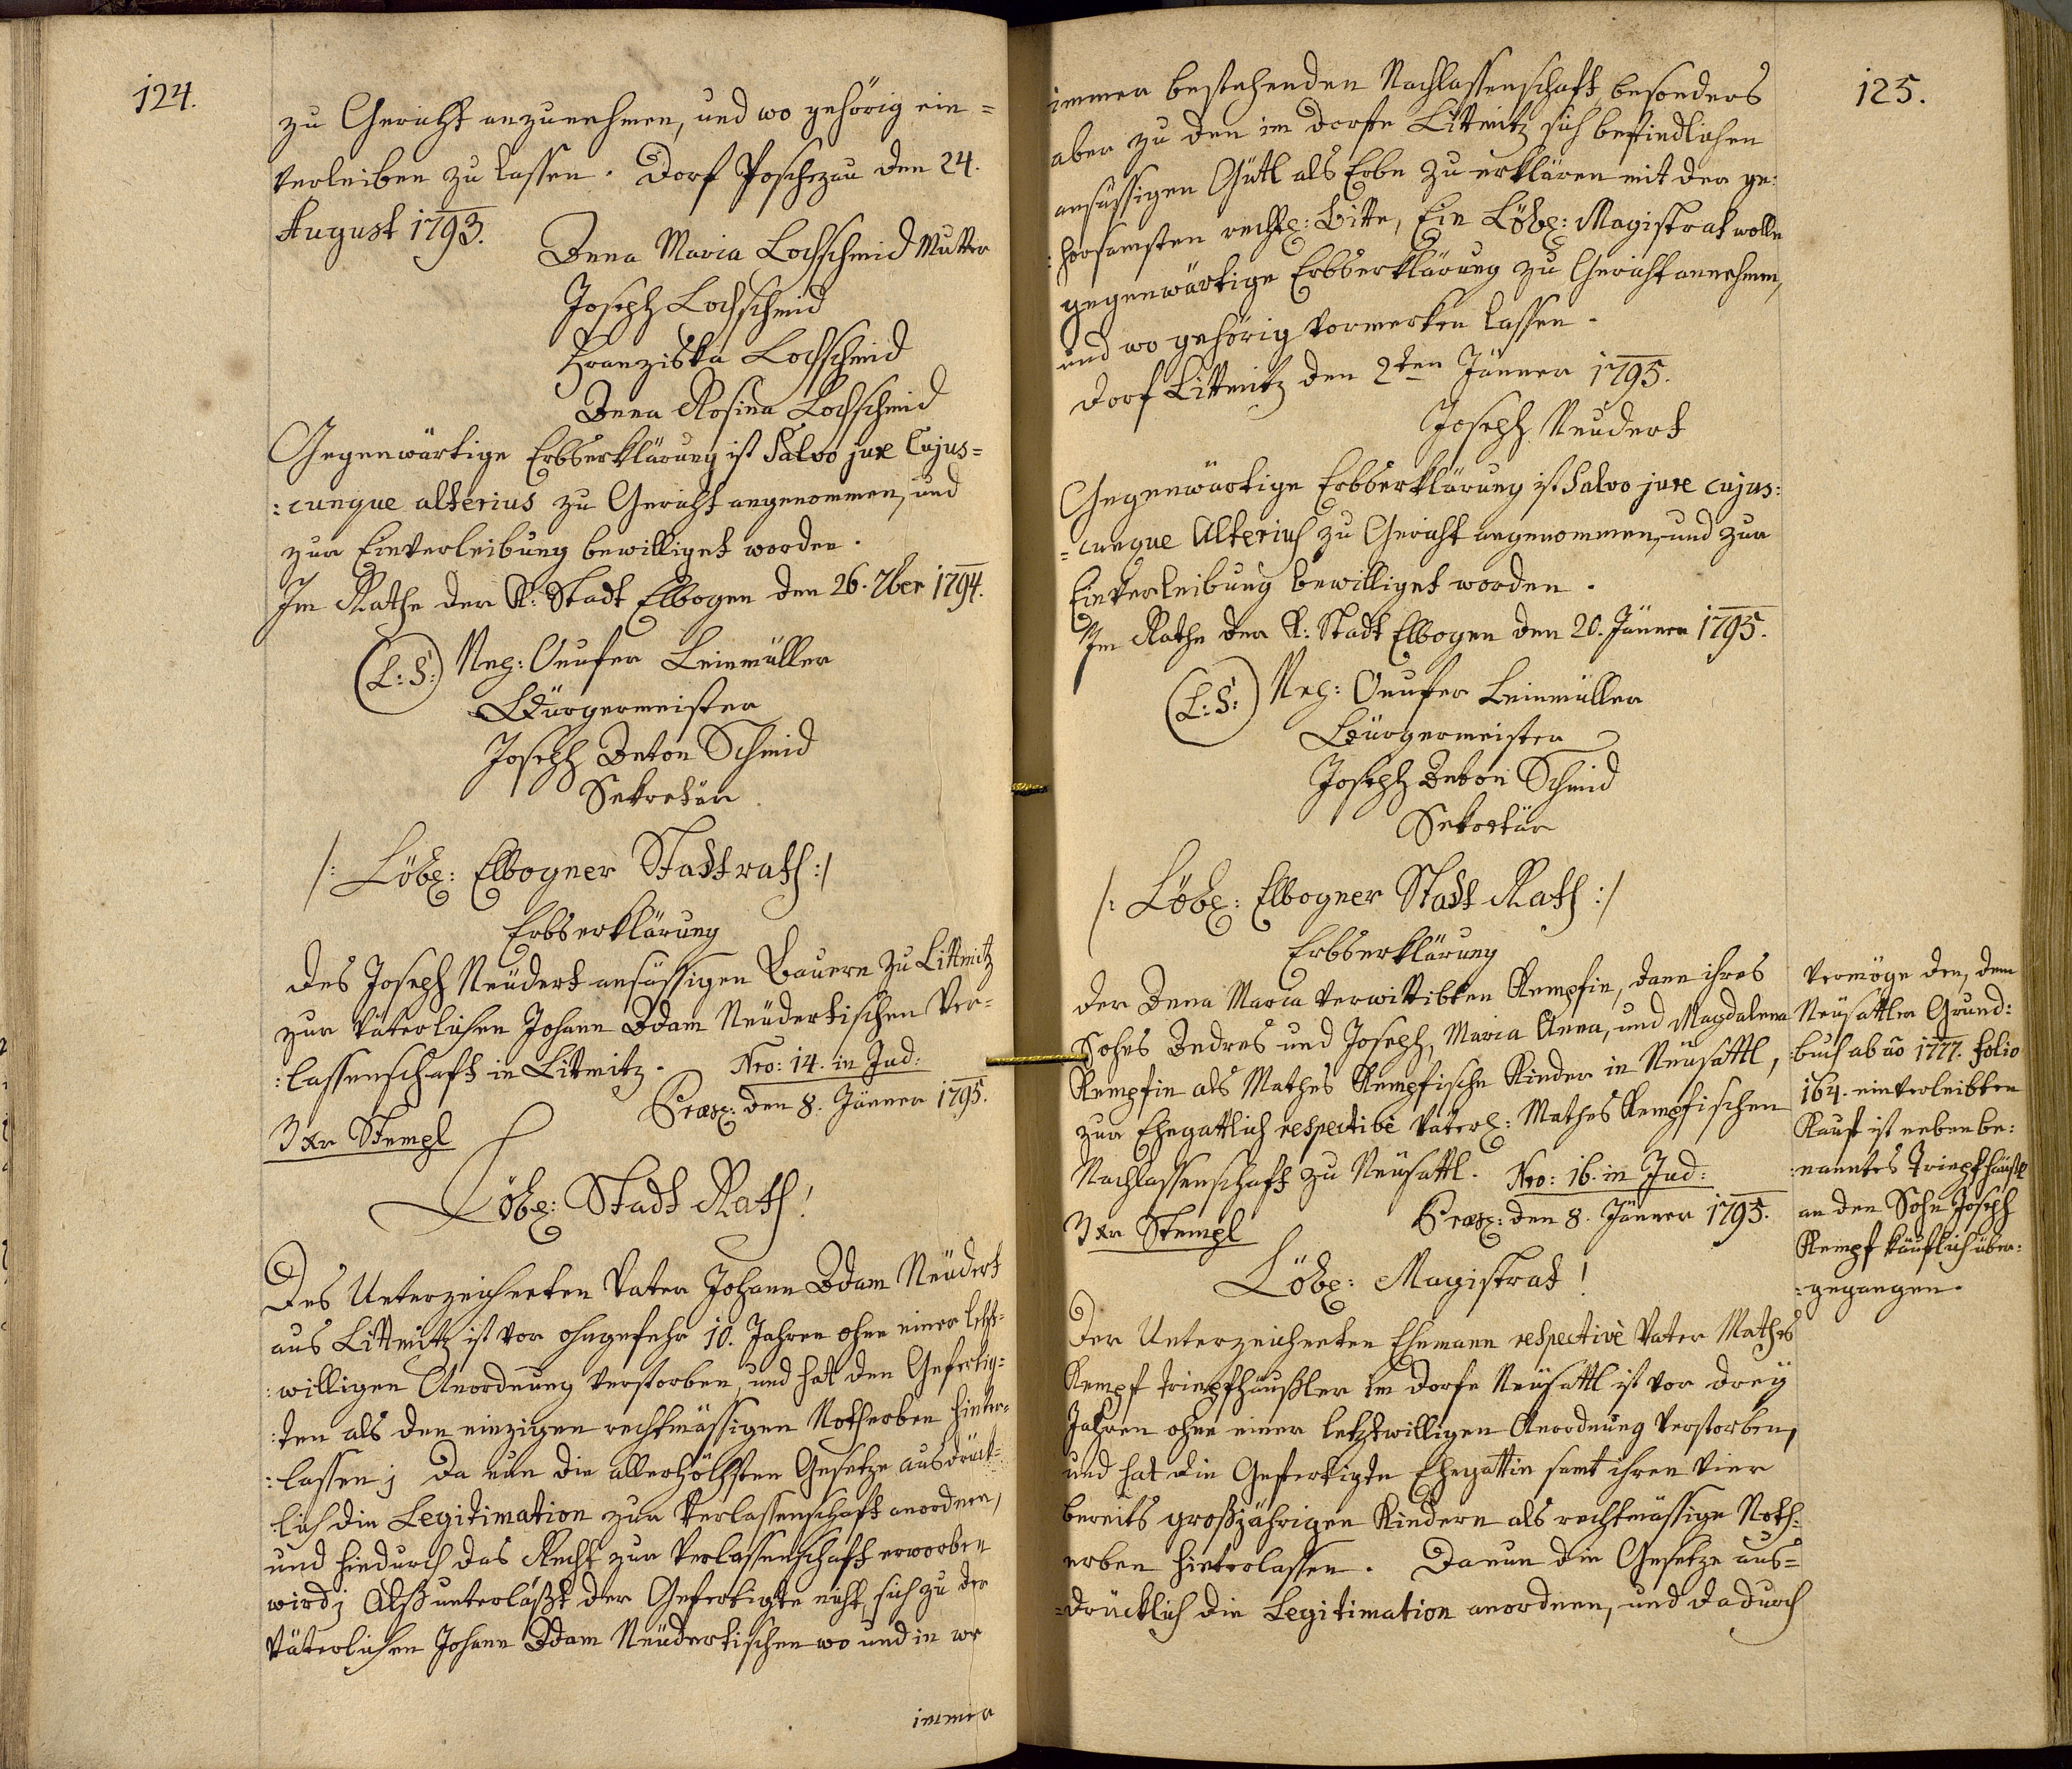 124.
zu Gericht anzunehmen, und wo gehörig ein=
verleiben zu lassen. Dorf Poschezau den 24.
August 1793.
Anna Maria Lochschmid Mutter
Joseph Lochschmid
Franziska Lochschmid
Anna Rosina Lochschmid
Gegenwärtige Erbserklärung ist Salvo jure Cujus=
:cunque alterius zu Gericht angenommen, und
zur Einverleibung bewilliget worden.
Im Rathe der K: Stadt Elbogen den 26. 7ber 1794.
(L:S:) Leinmüller
Bürgermeister
Joseph Anton Schmid
Sekretär
/: Löbl: Elbogner Stadtrath :/
Erbserklärung
des Joseph Neudert ansässigen Bauern zu Littmitz
zur väterlichen Johann Adam Neudertischen Ver=
:lassenschaft in Littmitz. Nro: 14. in Jud:
Præs: den 8. Jänner 1795.
3 Xr Stempl
Löbl: Stadt Rath!
Des Unterzeichneten Vater Johann Adam Neudert
aus Littmitz ist vor ohngefehr 10. Jahren ohne einer letzt=
:willigen Anordnung verstorben, und hat den Gefertig=
:ten als den einzigen rechtmässigen Notherben hinter=
:lassen; Da nun die allerhöchsten Gesetze ausdrück=
:lich die Legitimation zur Verlassenschaft anordnen,
und hiedurch das Recht zur Verlassenschaft erworben
wird; Alß unterläßt der Gefertigte nicht, sich zu der
väterlichen Johann Adam Neudertischen wo und in we
immer
125.
immer bestehenden Nachlassenschaft, besonders
aber zu den im Dorfe Littmitz sich befindlichen
ansässigen Gütl als Erbe zu erklären mit der ge:
:horsamsten rechtl: Bitte, Ein Löbl: Magistrat wolle
gegenwärtige Erbserklärung zu Gericht annehmen,
und wo gehörig vormerken lassen.
Dorf Littmitz den 2ten Jänner 1795.
Joseph Neudert
Gegenwärtige Erbserklärung ist Salvo jure cujus:
=cunque Alterius zu Gericht angenommen, und zur
Einverleibung bewilliget worden.
Im Rathe der K: Stadt Elbogen den 20. Jänner 1795.
(L:S:) Leinmüller
Bürgermeister
Joseph Anton Schmid
Sekretär
/: Löbl: Elbogner Stadt Rath :/
Erbserklärung
der Anna Maria verwittibten Kempfin, dann ihres
Sohes Andres und Joseph, Maria Anna, und Magdalena
Kempfin als Mathes Kempfische Kinder in Neusattl,
zur Ehegattlich respective väterl: Mathes Kempfischen
Nachlassenschaft zu Neusattl. Nro: 16. in Jud:
Præs: den 8. Jänner 1795.
3 Xr Stempl
Löbl: Magistrat!
Der Unterzeichneten Ehemann respective Vater Mathes
Kempf Tripfhäußler im Dorfe Neusattl ist vor drey
Jahren ohne einer letztwilligen Anordnung verstorben,
und hat die Gefertigte Ehegattin samt ihren vier
bereits großjährigen Kindern als rechtmässige Noth=
erben hinterlassen. Da nun die Gesetze aus=
=drücklich die Legitimation anordnen, und dadurch
Vermöge den, dem
Neusattler Grund:
:buch ab aõ 1777. folio
164. einverleibten
Kauf ist neben be:
:nanntes Tripfhäußl
an den Sohn Joseph
Kempf käuflich über:
:gegangen.